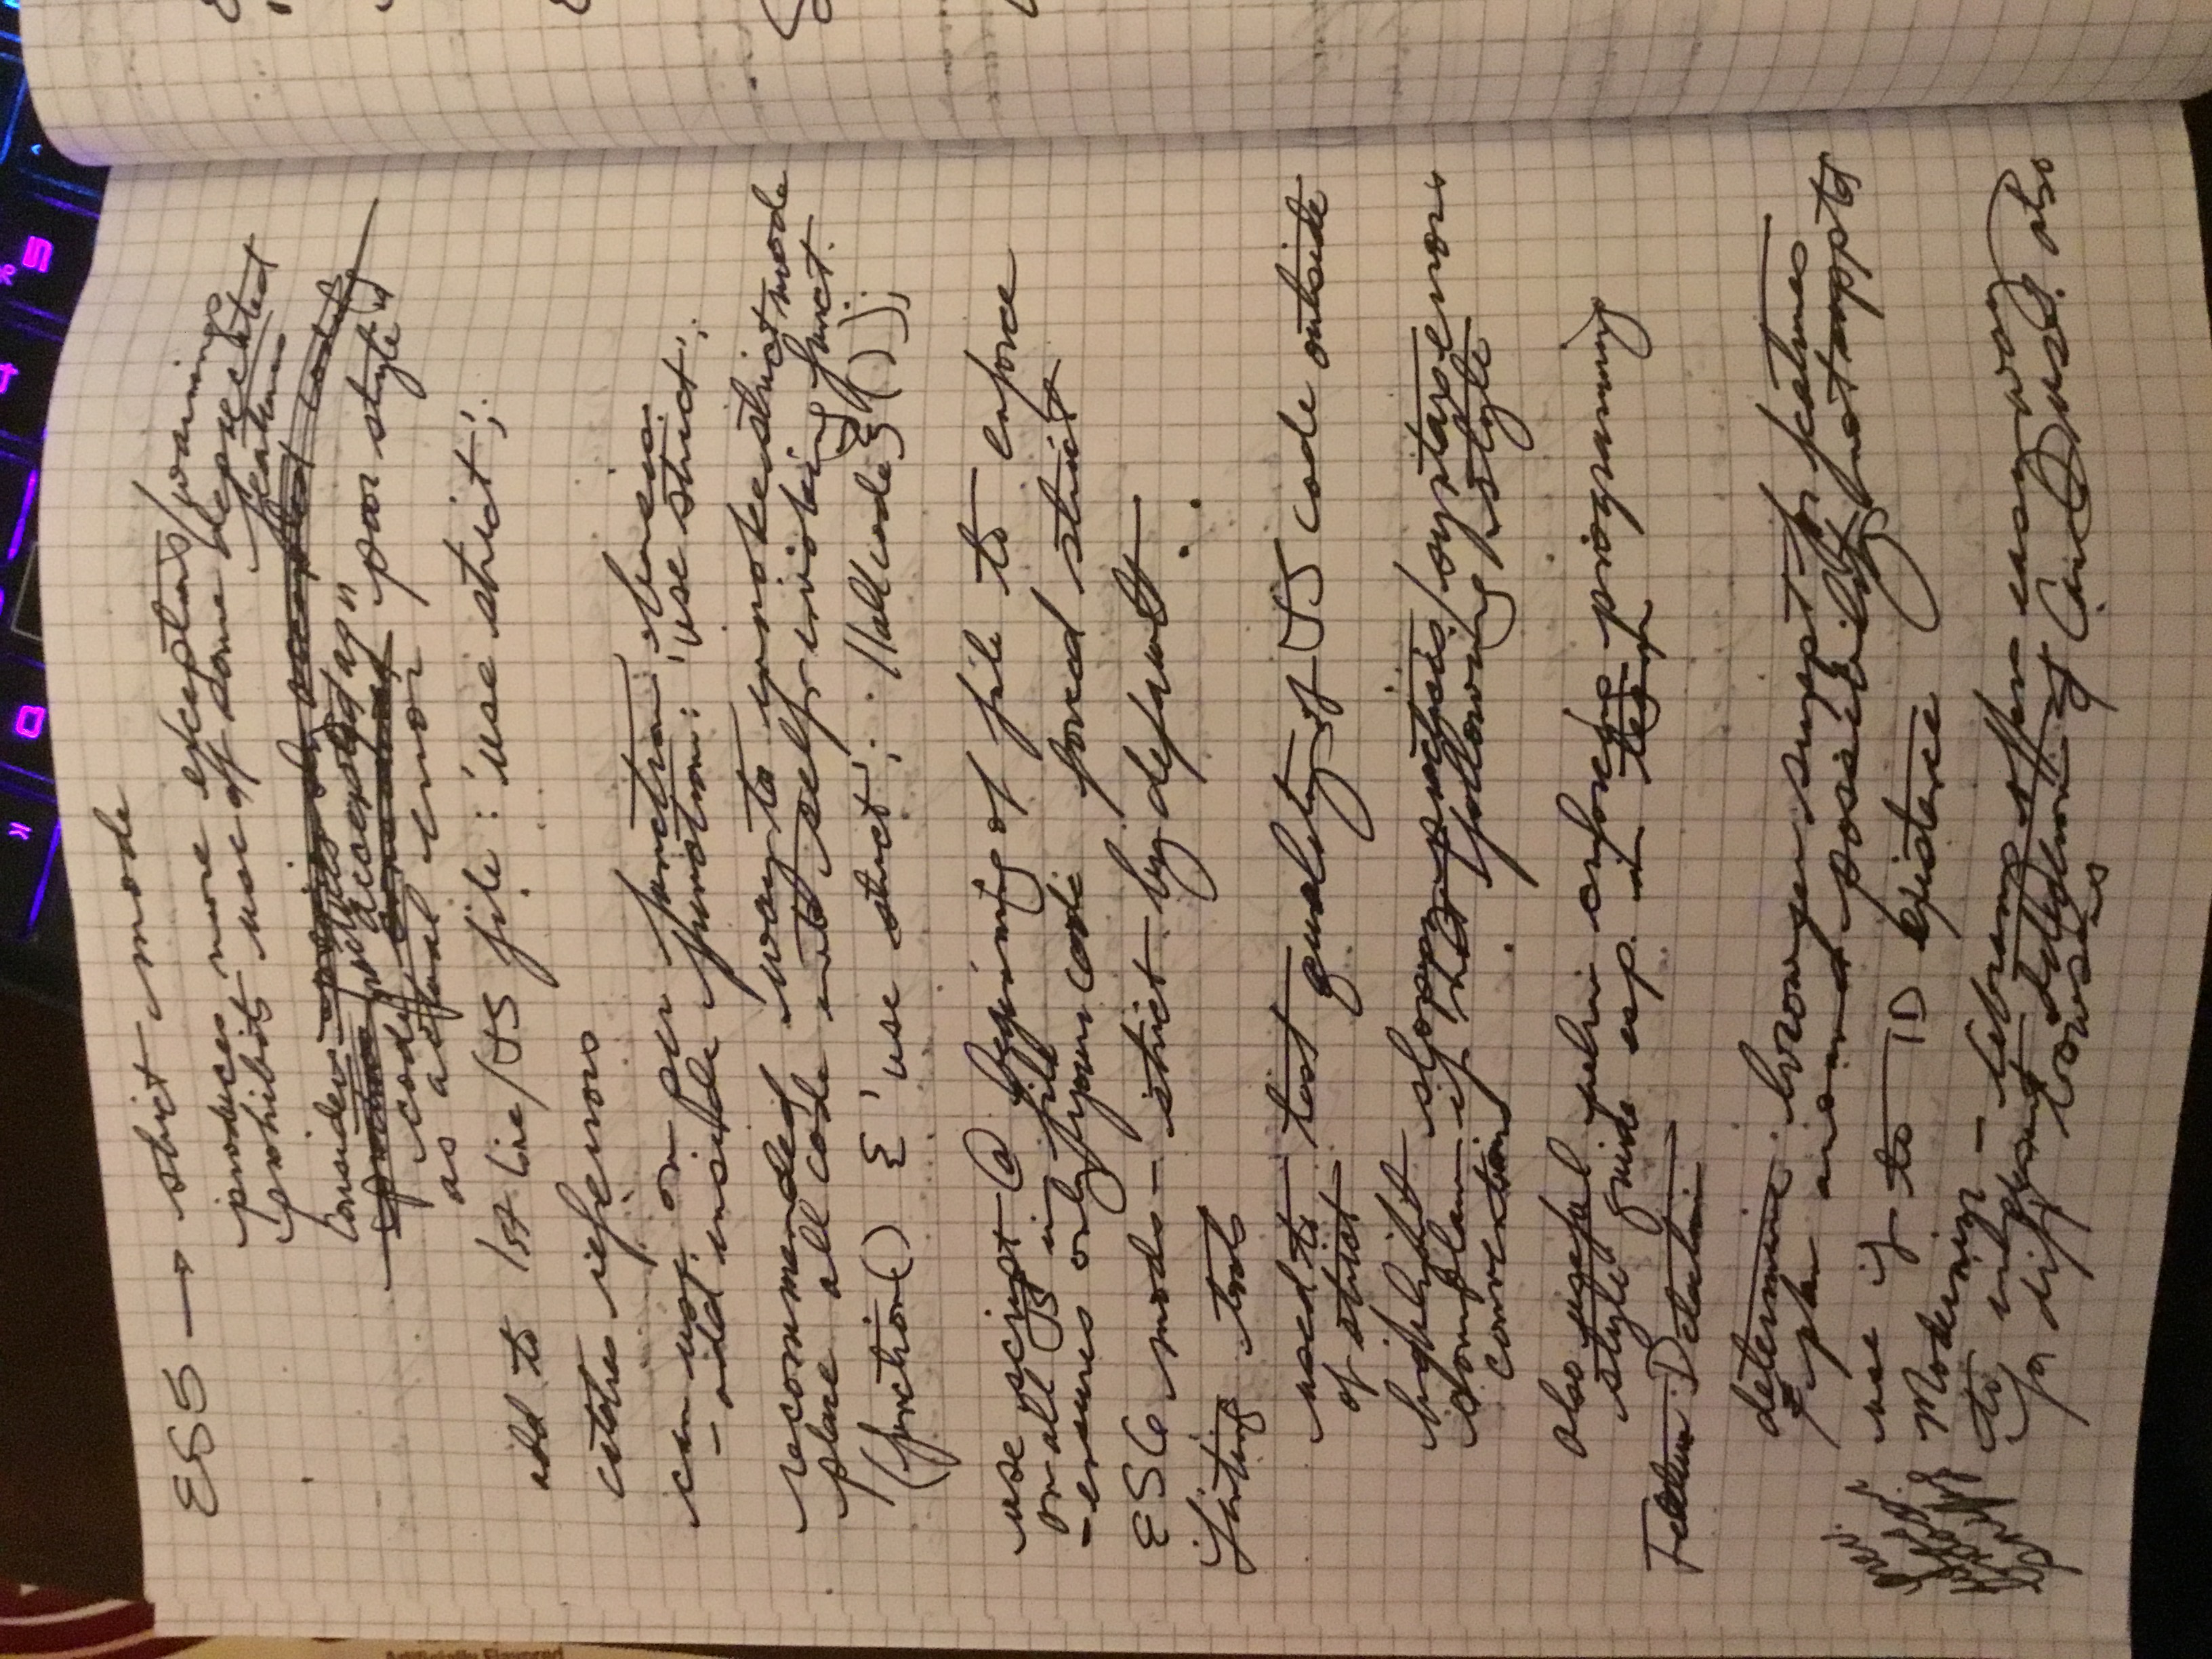 ES5 → strict mode
produces more exceptions/warnings
prohibits use of some deprecated
features
Considers previously accepted coding
practices practices accepted as "
code considered poor style"
as actual error
add to 1st line/JS file : 'use strict';
catches ref errors
can use on per function basis
- add inside function: 'use strict';
recommended way to invoke strict mode
place all code into self-invoking funct.
(function() { 'use strict'; //all code }());
use script @ beginning of file to enforce
on all JS in file
- ensures only your code forced strict
ES6 mods - strict by default
Linting tools
used to test quality of JS code outside
of strict
highlight sloppy practices/syntax errors
complain if not following style
conventions
also useful when enforcing programming
style guide esp. in team
Feature Detection
determine browser suppt for features
& plan around possibility not suppted
use if to ID existence
Modernizr - library offers easy way
to implement detection of CanIUse. also
for diff browsers
prev.
browser
sniffing